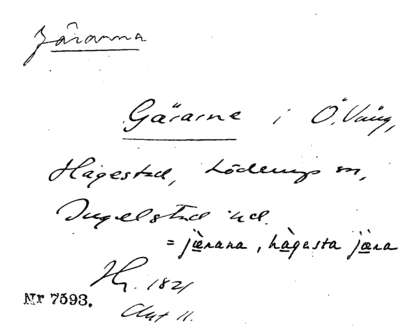 Järarna
Gärarne i Ö. Vång,
Hagestad, Löderups sn,
Ingelstad hd.
= jærana, hàgesta jæra
Hy. 1821
Nr 7593.
Akt 11.